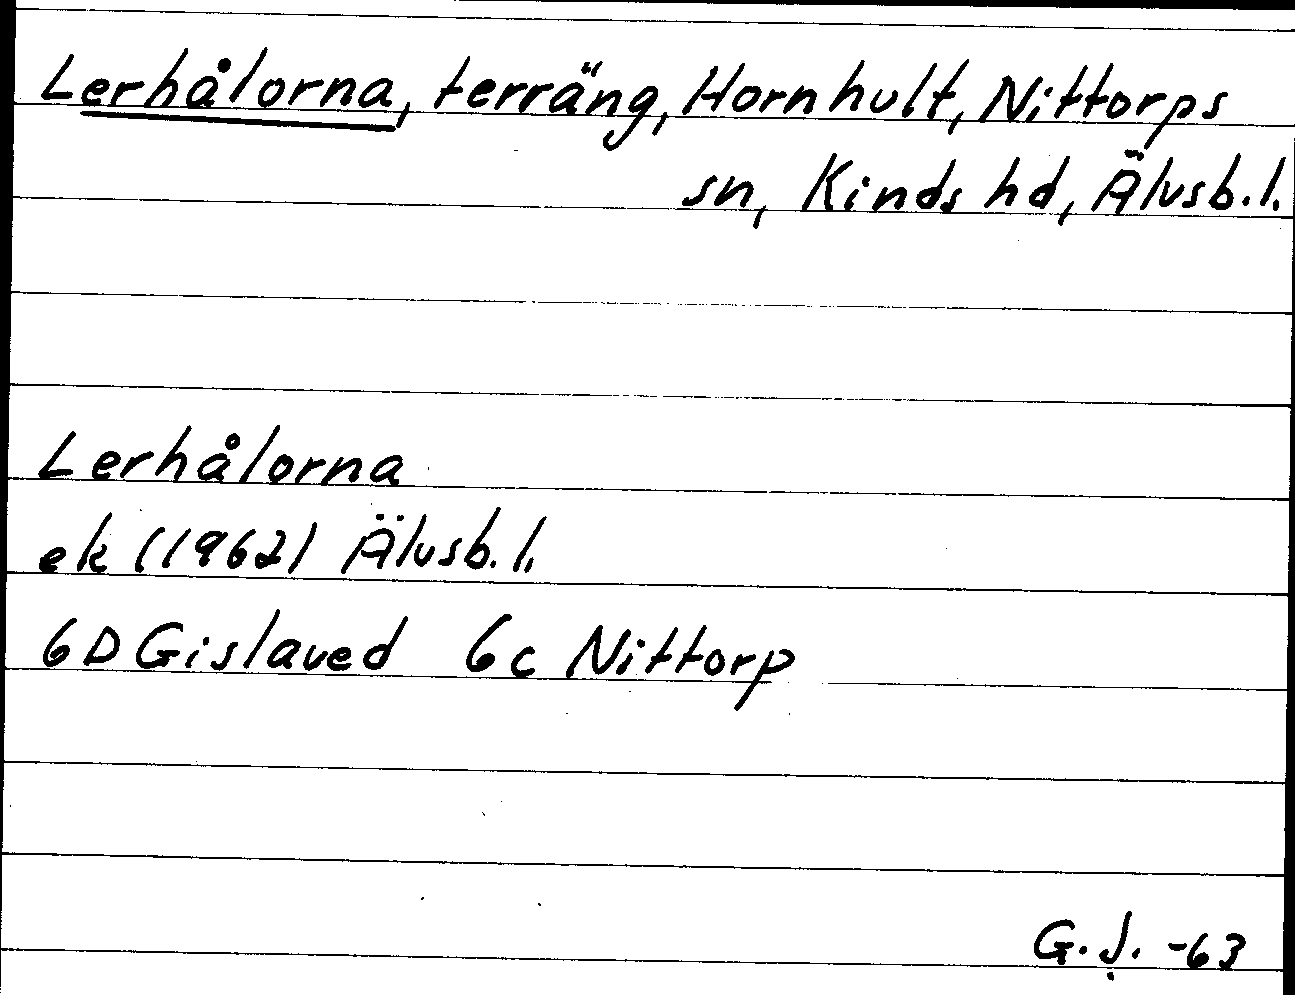 Lerhålorna, terräng, Hornhult, Nittorps
sn, Kinds hd, Älvsb. l.
Lerhålorna
ek (1962) Älvsb. l.
6D Gislaved 6c Nittorp
G. J. -63